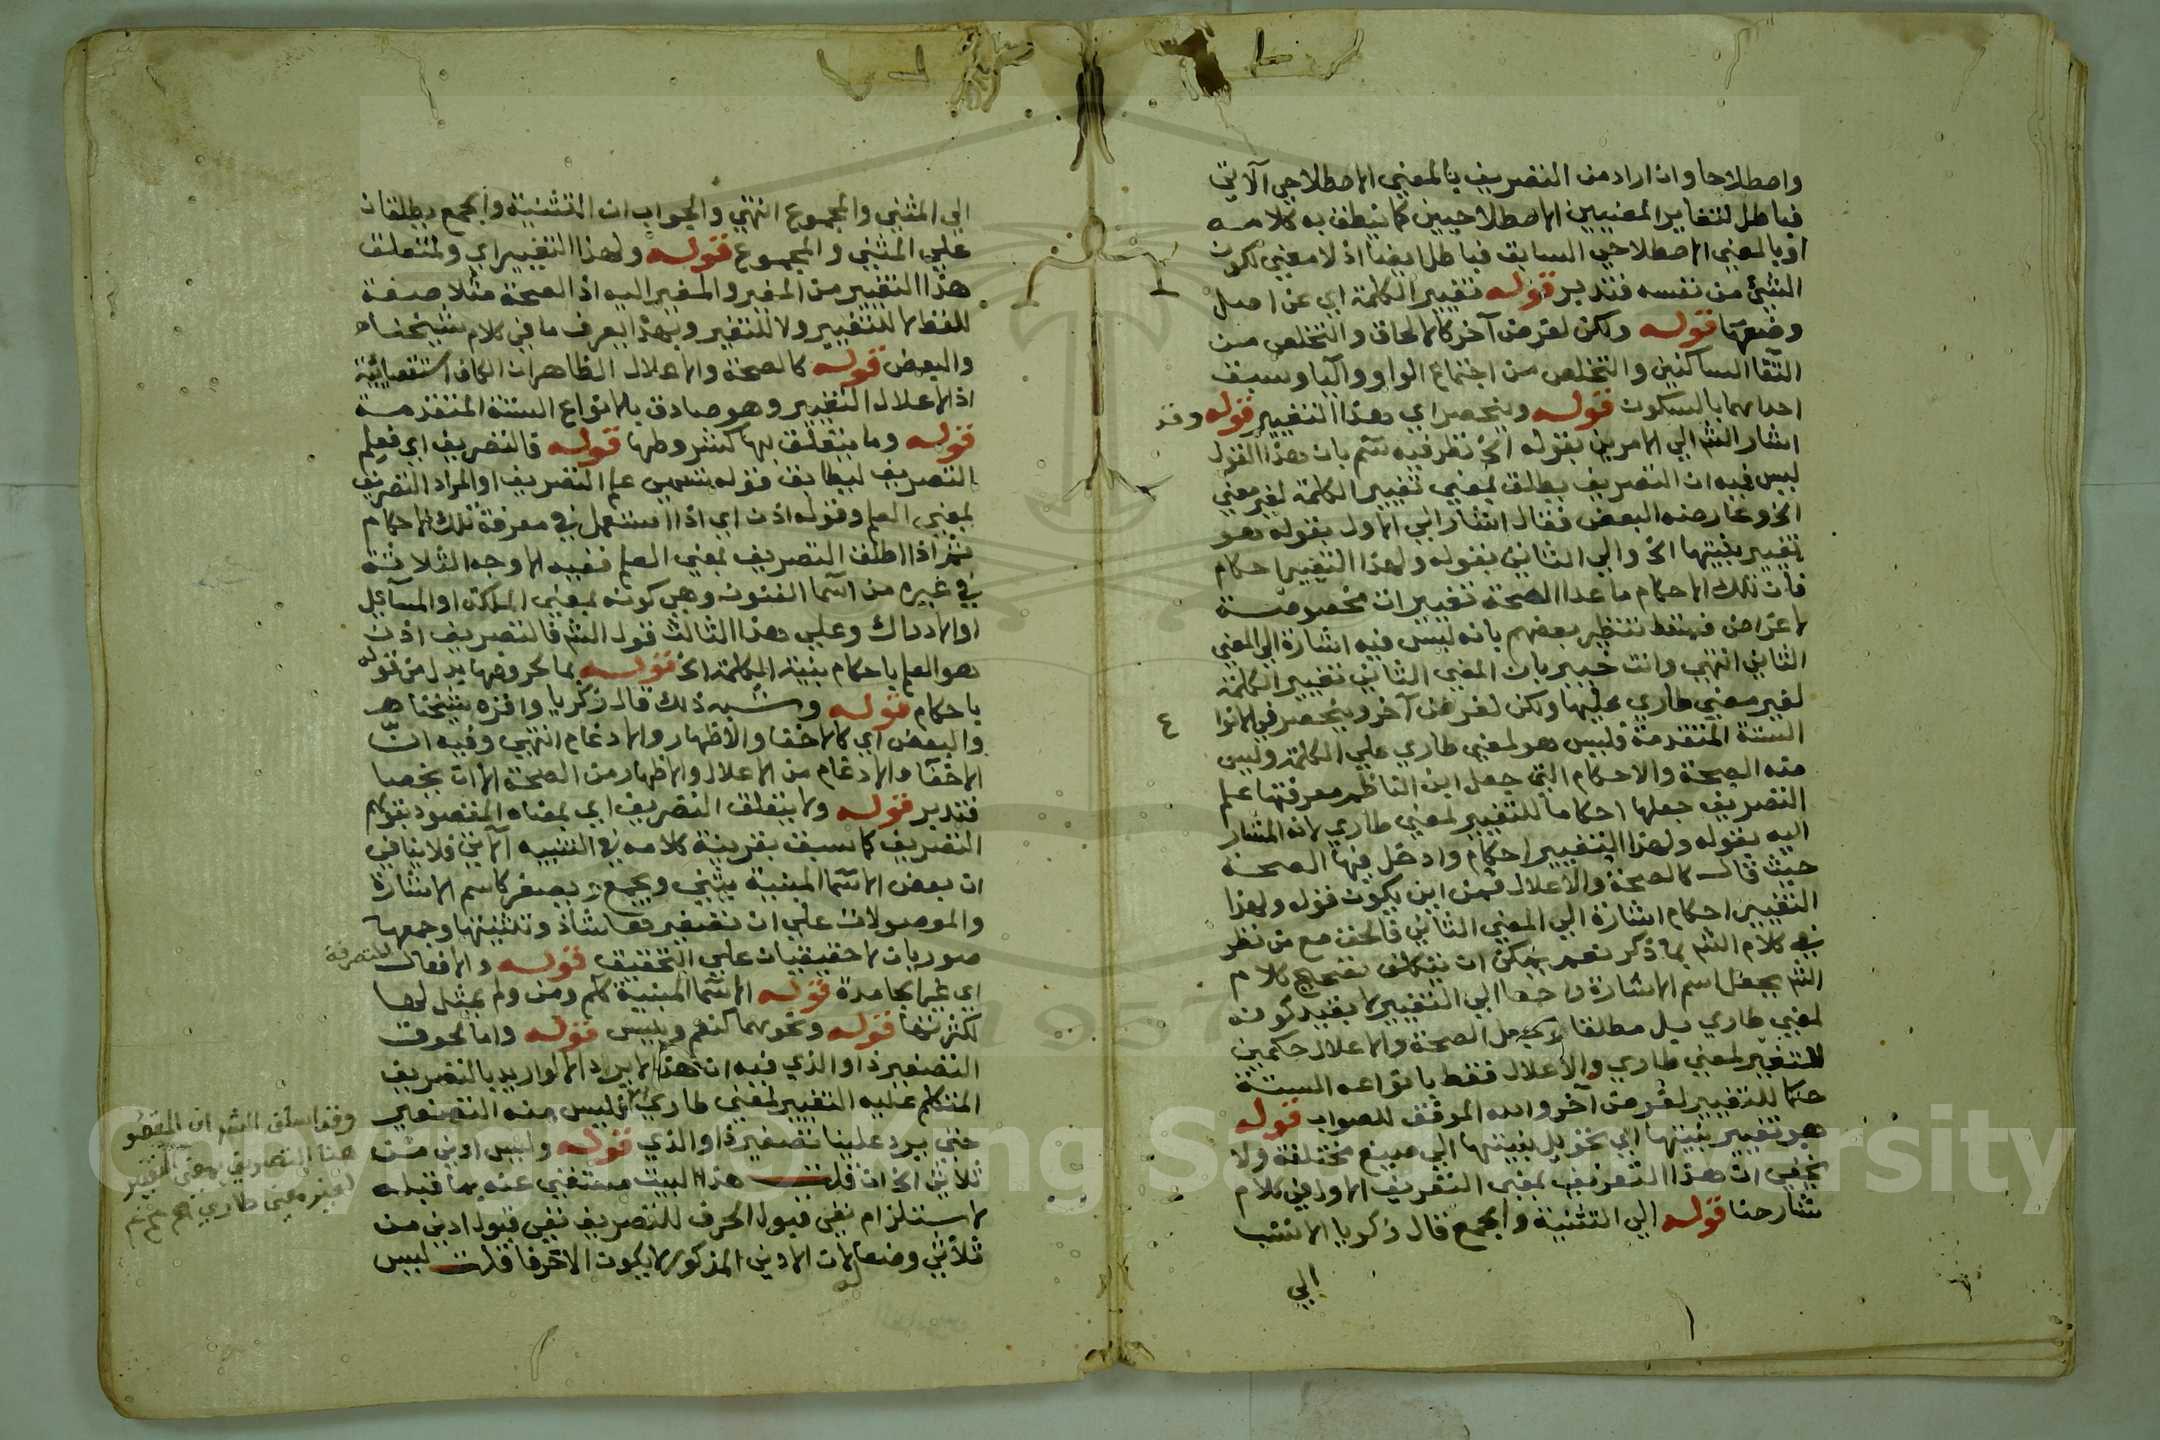 واصطلاحا وان اراد من التصريف بالمعني الاصطلاحي الآتي
فباطل لتغاير المعنيين الاصطلاحيين كما ينطق به كلامه
او بالمعني الاصطلاحي السابق فباطل ايضا اذ لا معني لكون
الشئ من نفسه فتدبر قوله تغيير الكلمة اي عن اصل
وضعها قوله ولكن لغرض آخر كالالحاق والتخلص من
التقا الساكنين والتخلص من اجتماع الواو واليا وسبق
احداهما بالسكون قوله وينحصر اي هذا التغيير قوله وقد
اشار الش الي الامرين بقوله الخ نظر فيه سم بان هذا القول
ليس فيه ان التصريف يطلق بمعني تغيير الكلمة لغير معني
الخ وعارضه البعض فقال اشار الي الاول بقوله هو
تغيير بنيتها الخ والي الثاني بقوله ولهذا التغيير احكام
فان تلك الاحكام ما عدا الصحة تغييرات مخصوصة
لاغراض فسقط تنظير بعضهم بانه ليس فيه اشارة الي المعني
الثاني انتهي وانت خبير بان المعني الثاني تغيير الكلمة
لغير معني طاري عليها ولكن لغرض آخر وينحصر في الانوا
الستة المتقدمة فليس هو لمعني طاري علي الكلمة وليس
منه الصحة والاحكام التي جعل ابن الناظم معرفتها علم
التصريف جعلها احكاما للتغيير لمعني طاري لانه المشار
اليه بقوله ولهذا التغيير احكام وادخل فيها الصحة
حيث قال كالصحة والاعلال فمن اين يكون قوله ولهذا
التغيير احكام اشارة الي المعني الثاني فالحق مع من نظر
في كلام الش بما ذكر نعم يمكن ان يتكلف تصحيح كلام
الش بجعل اسم الاشارة راجعا الي التغيير لا بقيد كونه
لمعني طاري بل مطلقا الصحة والاعلال حكمين
للتغيير لمعني طاري والاعلال فقط بانواعه الستة
حكما للتغيير لغرض آخر والله الموفق للصواب قوله
هو تغيير بنيتها اي تحويل بنيتها الي صيغ مختلفة ولا
يخفي ان هذا التعريف بمعني التعريف الاول في كلام
شارحنا قوله الي التثنية والجمع قال زكريا الانسب
الي
الي المثني والمجموع انتهي والجواب ان التثنية والجمع يطلقان
علي المثني والمجموع قوله ولهذا التغيير اي ولمتعلق
هذا التغيير من المغير والمغير اليه اذ الصحة مثلا صفة
للفظ لا للتغيير ولا للتغير وبهذا يعرف ما في كلام شيخنا
والبعض قوله كالصحة والاعلال الظاهر ان الكاف استقصائية
اذ الاعلال التغيير وهو صادق بالانواع الستة المتقدمة
قوله وما يتعلق بها كشروطها قوله فالتصريف اي فعلم
التصريف ليطابق قوله تسمي علم التصريف او المراد التصريف
بمعني العلم وقوله اذن اي اذا استعمل في معرفة تلك الاحكام
ثم اذا اطلق التصريف بمعني العلم ففيه الاوجه الثلاثة
في غيره من اسما الفنون وهي كونه بمعني الملكة او المسائل
او الادراك وعلي هذا الثالث قول الش فالتصريف اذن
هو العلم باحكام بنية الكلمة الخ قوله بما لحروفها بدل من قوله
باحكام قوله وشبه ذلك قال زكريا واقره شيخنا
والبعض اي كالاخفا والاظهار والادغام انتهي وفيه ان
الاخفا والادغام من الاعلال والاظهار من الصحة الا ان يخصا
فتدبر قوله ولا يتعلق التصريف اي بمعناه المقصود بقولهم
التصريف كما سبق بقرينة كلامه في التنبيه الآتي ولا ينافي
ان بعض الاسما المبنية يثني ويجمع ويصغر كاسم الاشارة
والموصولات علي ان تصغيرهما شاذ وتثنيتها وجمعها
صوريان لا حقيقيان علي التحقيق قوله والافعال المتصرفة
اي غير الجامدة قوله الاسما المبنية ككم ومن ولم يمثل لها
لكثرتها قوله ونحوهما كنعم وبئس قوله واما لحوق
التصغير ذا والذي فيه ان هذا الايراد الا لو اريد بالتصريف
المتكلم عليه التغيير لمعني طاري فليس منه التصغير
حتي يرد علينا تصغير ذا والذي قوله وليس ادني من
ثلاثي الخ ان قلت هذا البيت مستغني عنه بما قبله
لاستلزام نفي قبول الحرف للتصريف نفي قبول ادني من
ثلاثي وضعا لان الادني المذكور لا يكون الا حرفا قلت ليس
وقد اسلف الش ان المقصو
هنا التصريف بمعني التغيير
لغير معني طاري